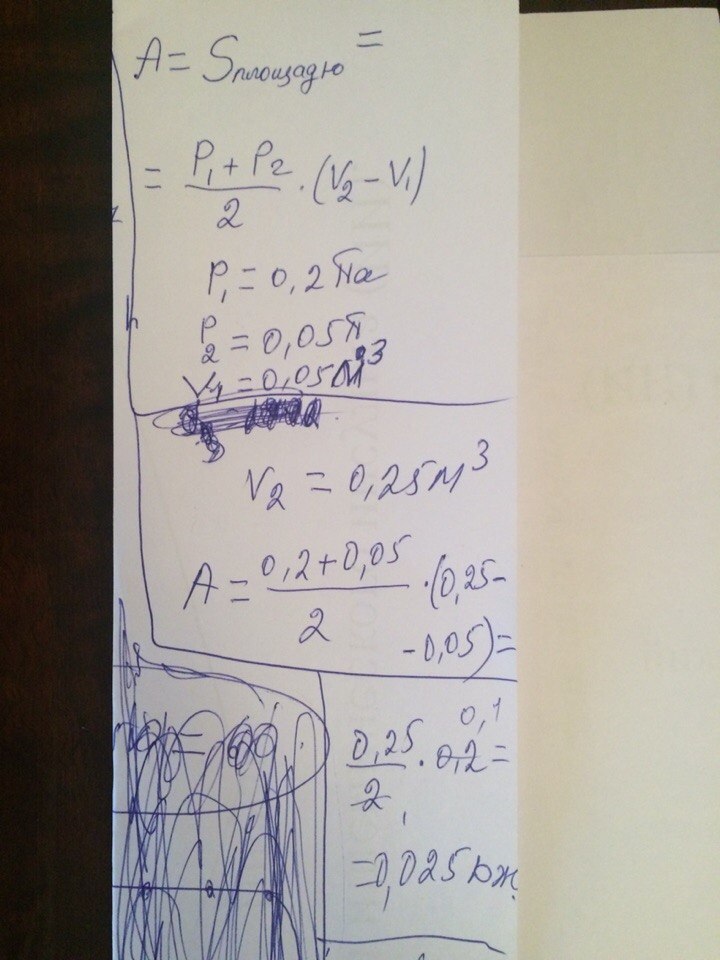 A = Sплощадю =
= (P₁ + P₂)/2 · (V₂ − V₁)
P₁ = 0,2 Па
P₂ = 0,05 П
V₁ = 0,05 м³
V₂ = 0,25 м³
A = (0,2 + 0,05)/2 · (0,25 −
− 0,05) =
0,1
0,25/2 · 0,2 =
= 0,025 Дж